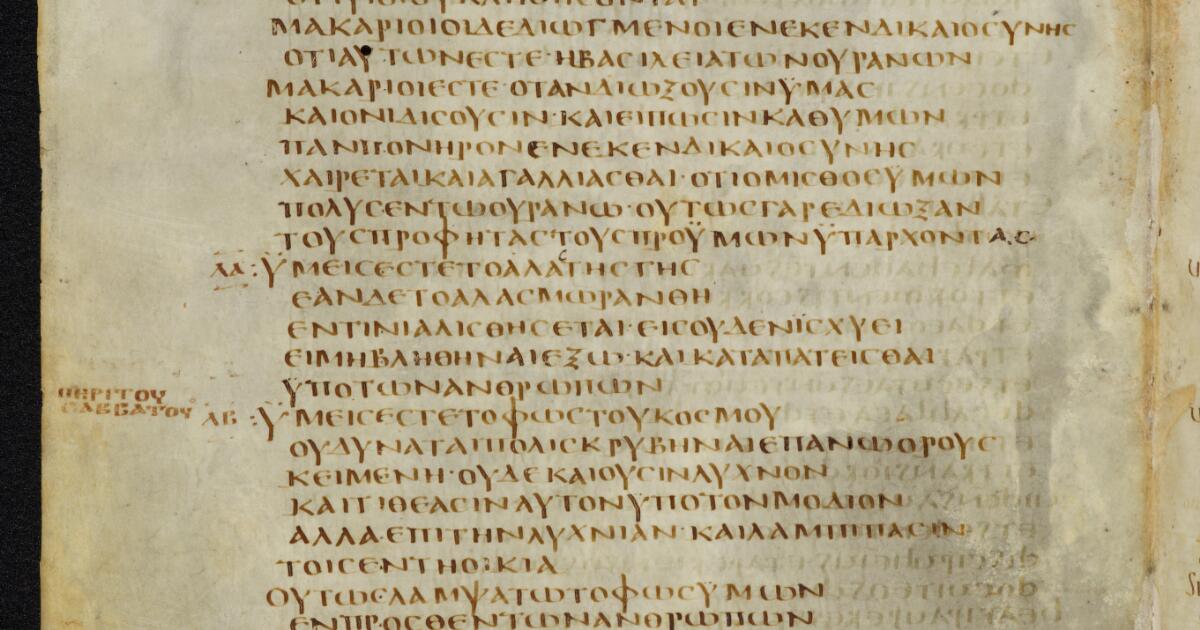 ΜΑΚΑΡΙΟΙΟΙΔΕΔΙΩΓΜΕΝΟΙΕΝΕΚΕΝΔΙΚΑΙΟΣΥΝΗΣ
ΟΤΙΑΥΤΩΝΕΣΤΕ·ΗΒΑΣΙΛΕΙΑΤΩΝΟΥΡΑΝΩΝ
ΜΑΚΑΡΙΟΙΕΣΤΕ·ΟΤΑΝΔΙΩΞΟΥΣΙΝΫΜΑΣ
ΚΑΙΟΝΙΔΙΣΟΥΣΙΝ·ΚΑΙΕΙΠΩΣΙΝΚΑΘΥΜΩΝ
ΠΑΝΠΟΝΗΡΟΝΕΝΕΚΕΝΔΙΚΑΙΟΣΥΝΗΣ
ΧΑΙΡΕΤΑΙΚΑΙΑΓΑΛΛΙΑΣΘΑΙ·ΟΤΙΟΜΙΣΘΟΣΫΜΩΝ
ΠΟΛΥΣΕΝΤΩΟΥΡΑΝΩ·ΟΥΤΩΣΓΑΡΕΔΙΩΞΑΝ
ΤΟΥΣΠΡΟΦΗΤΑΣΤΟΥΣΠΡΟΫΜΩΝΫΠΑΡΧΟΝΤΑΣ
ΛΑ:ΫΜΕΙΣΕΣΤΕΤΟΑΛΑΣΤΗΣΓΗΣ
ΕΑΝΔΕΤΟΑΛΑΣΜΩΡΑΝΘΗ
ΕΝΤΙΝΙΑΛΙΣΘΗΣΕΤΑΙ·ΕΙΣΟΥΔΕΝΪΣΧΥΕΙ
ΕΙΜΗΒΛΗΘΗΝΑΙΕΞΩ·ΚΑΙΚΑΤΑΠΑΤΕΙΣΘΑΙ
ΫΠΟΤΩΝΑΝΘΡΩΠΩΝ
ΠΕΡΙΤΟΥ
ΣΑΒΒΑΤΟΥ
ΛΒ:ΫΜΕΙΣΕΣΤΕΤΟΦΩΣΤΟΥΚΟΣΜΟΥ
ΟΥΔΥΝΑΤΑΙΠΟΛΙΣΚΡΥΒΗΝΑΙΕΠΑΝΩΟΡΟΥΣ
ΚΕΙΜΕΝΗ·ΟΥΔΕΚΑΙΟΥΣΙΝΛΥΧΝΟΝ
ΚΑΙΤΙΘΕΑΣΙΝΑΥΤΟΝΫΠΟΤΟΝΜΟΔΙΟΝ
ΑΛΛΑΕΠΙΤΗΝΛΥΧΝΙΑΝ·ΚΑΙΛΑΜΠΙΠΑΣΙΝ
ΤΟΙΣΕΝΤΗΟΙΚΙΑ
ΟΥΤΩΣΛΑΜΨΑΤΩΤΟΦΩΣΫΜΩΝ
ΕΝΠΡΟΣΘΕΝΤΩΝΑΝΘΡΩΠΩΝ